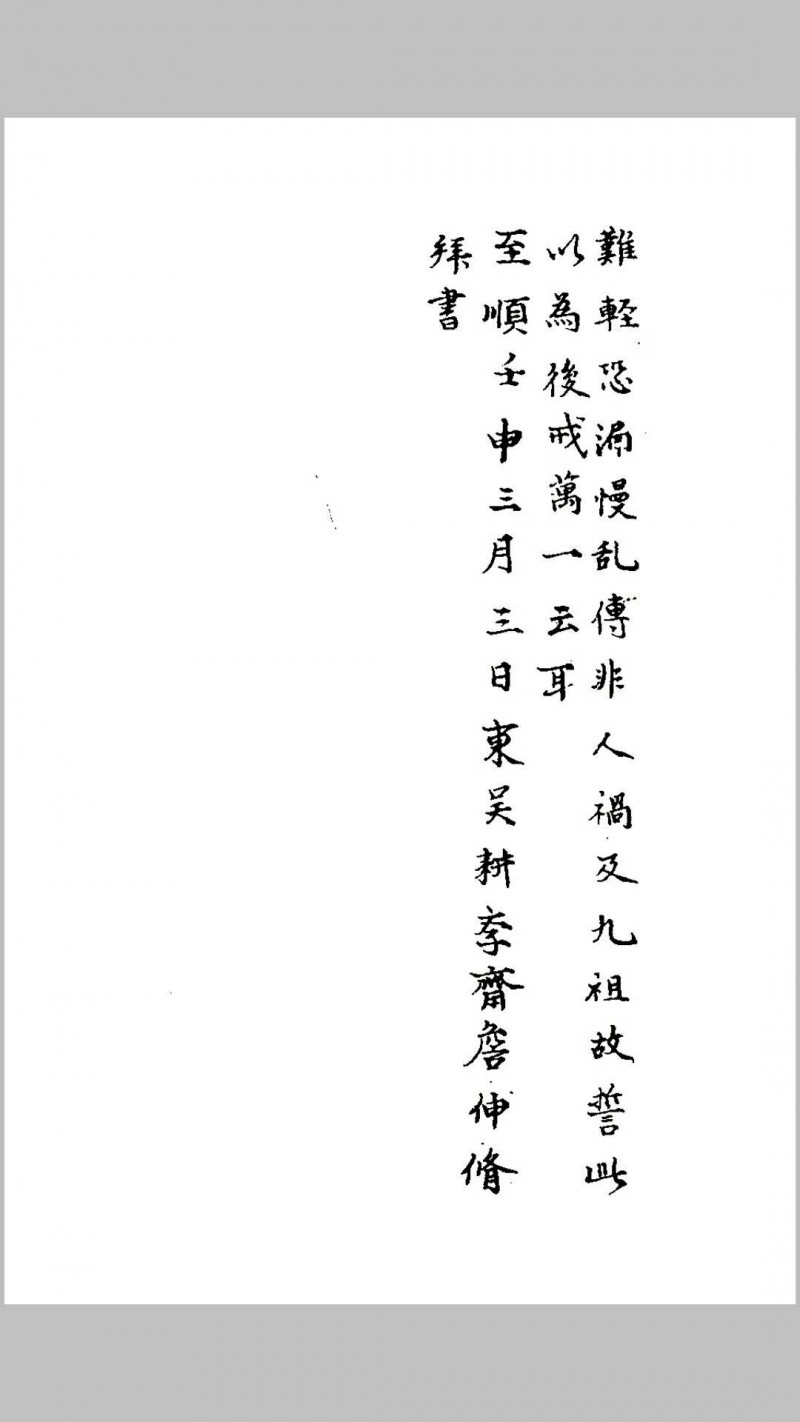 難軽恐漏慢乱傳非人禍及九祖故誓此
以為後戒萬一云耳
至順壬申三月三日東吴耕李齋詹仲脩
拜書